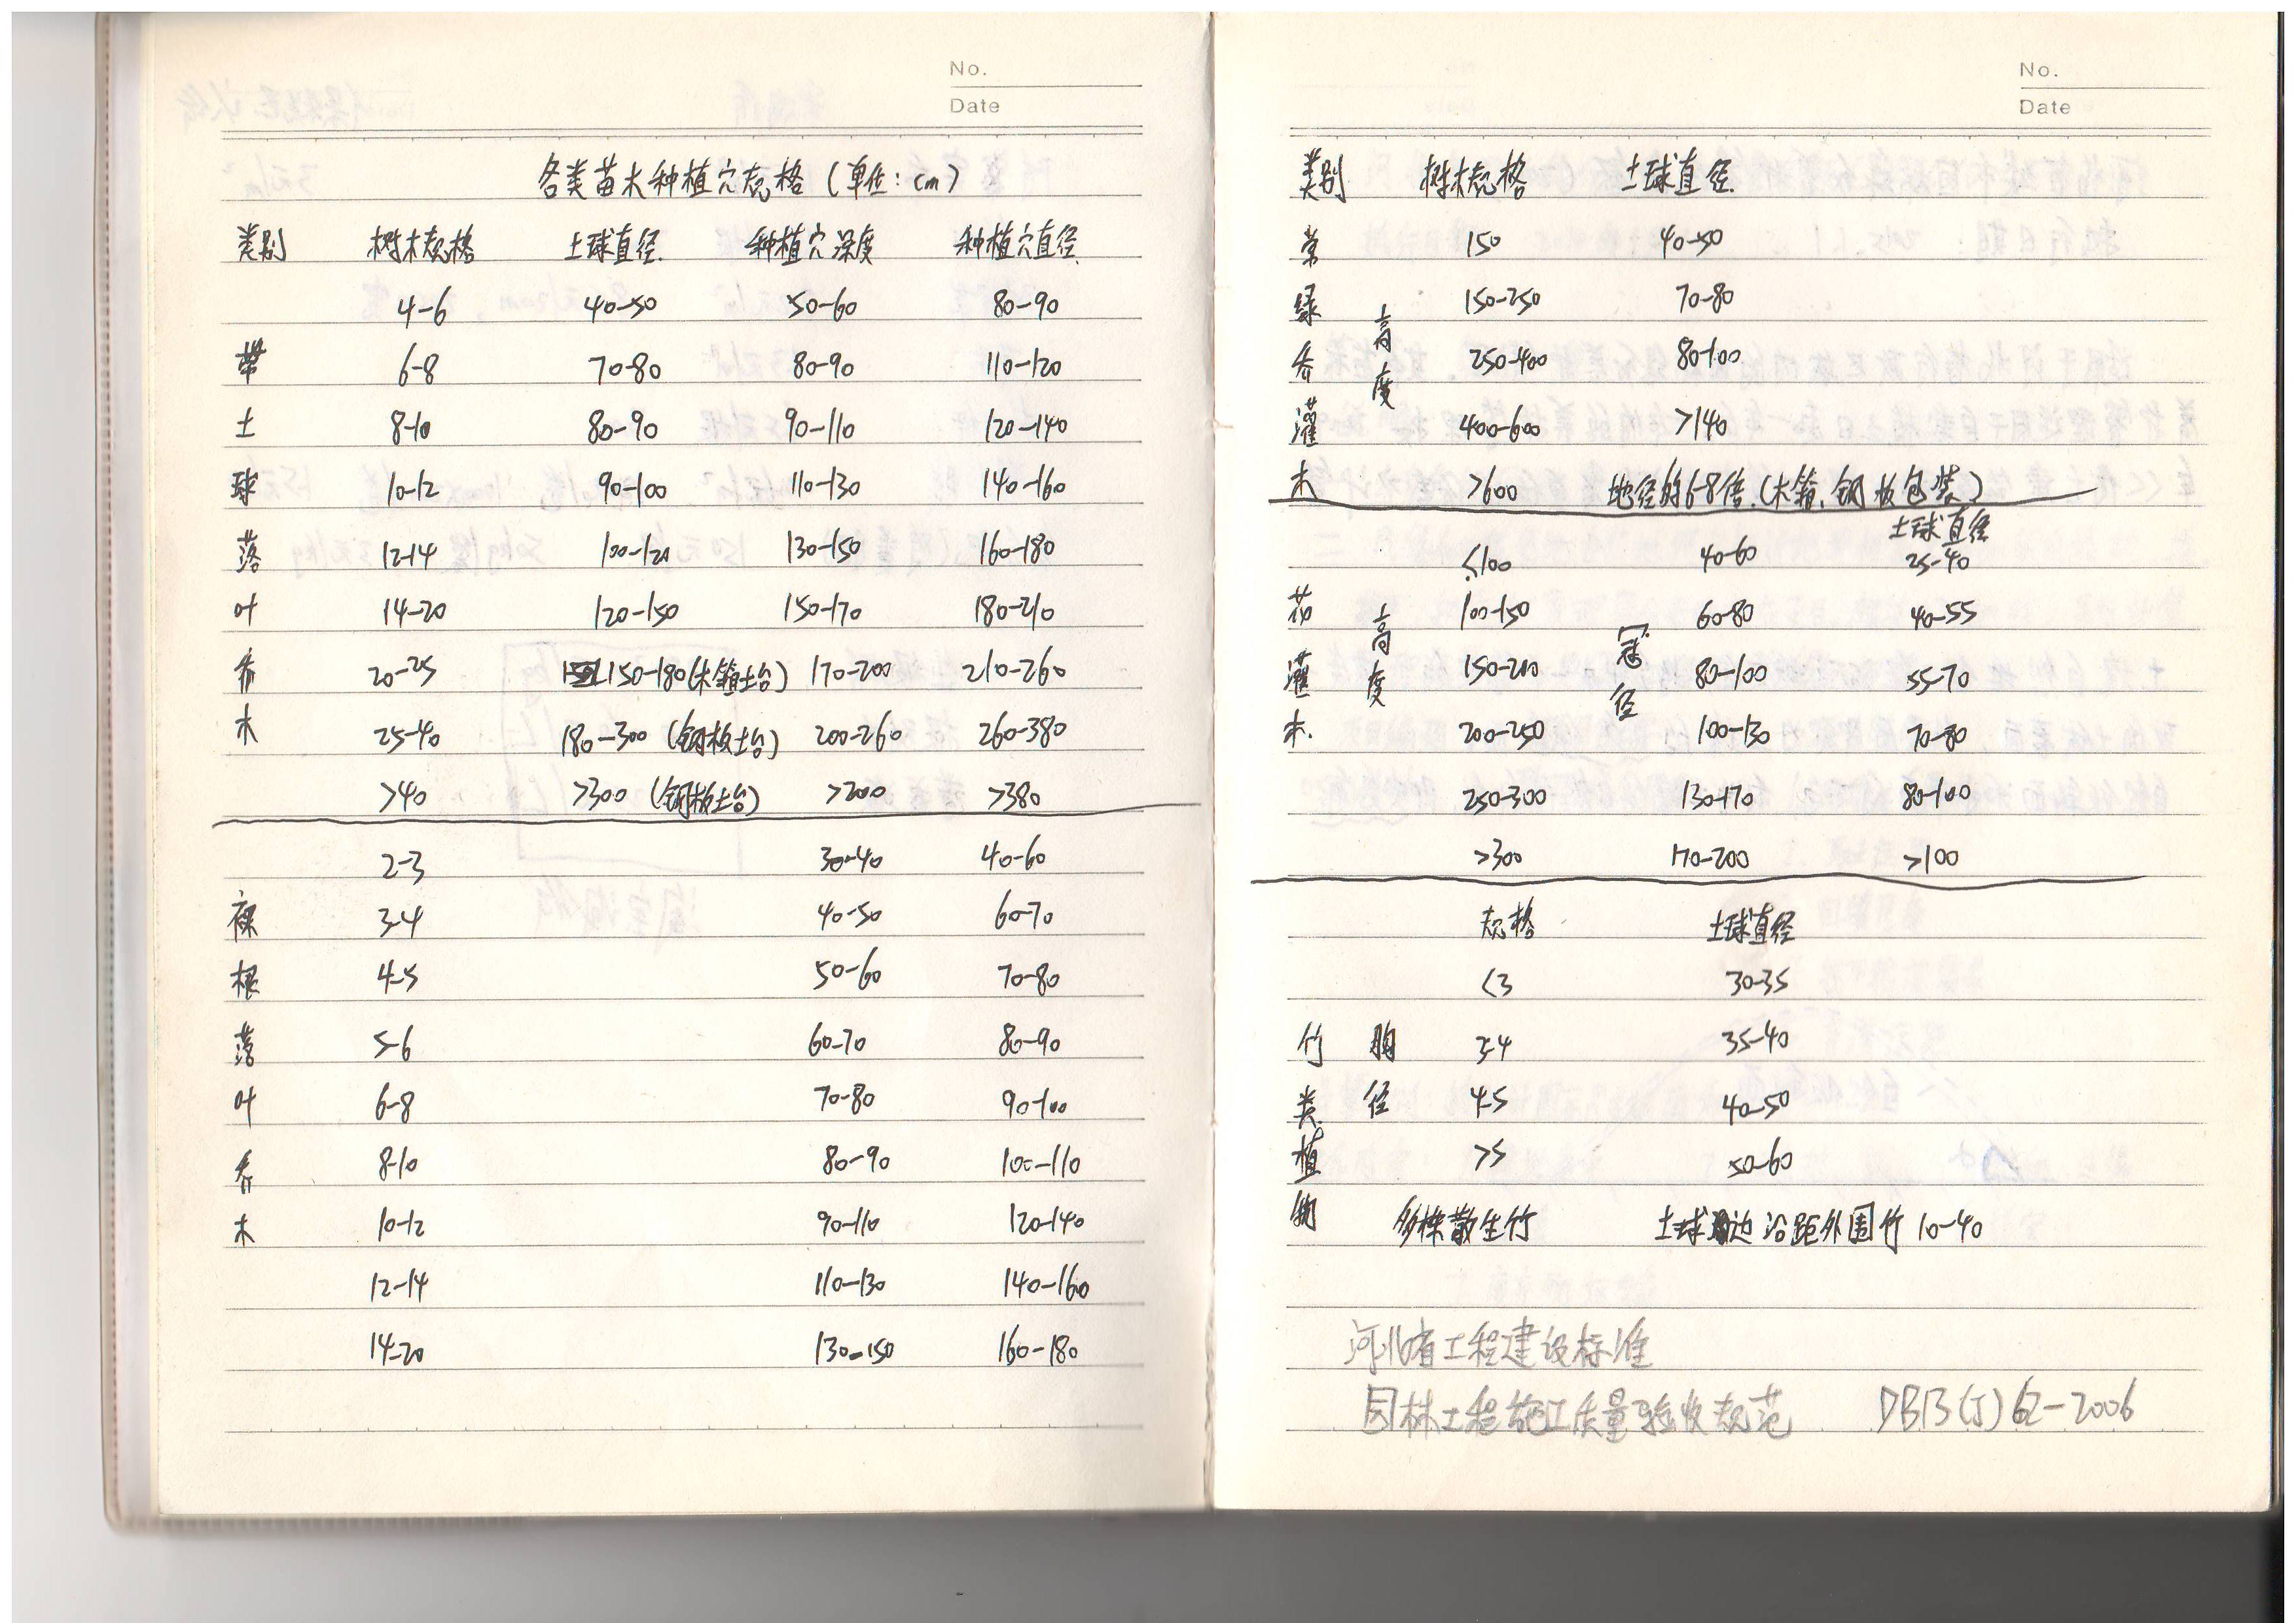 No.
Date
各类苗木种植穴规格(单位:cm)
类别 树木规格 土球直径 种植穴深度 种植穴直径
4-6 40-50 50-60 80-90
带 6-8 70-80 80-90 110-120
土 8-10 80-90 90-110 120-140
球 10-12 90-100 110-130 140-160
落 12-14 100-120 130-150 160-180
叶 14-20 120-150 150-170 180-210
乔 20-25 150-180(木箱土台) 170-200 210-260
木 25-40 180-300 (钢板土台) 200-260 260-380
>40 >300 (钢板土台) >200 >380
2-3 30-40 40-60
裸 3-4 40-50 60-70
根 4-5 50-60 70-80
落 5-6 60-70 80-90
叶 6-8 70-80 90-100
乔 8-10 80-90 100-110
木 10-12 90-110 120-140
12-14 110-130 140-160
14-20 130-150 160-180
No.
Date
类别 树木规格 土球直径
常 150 40-50
绿 高 150-250 70-80
乔 度 250-400 80-100
灌 400-600 >140
木 >600 地径的6-8倍.(木箱、钢板包装)
土球直径
≤100 40-60 25-40
花 高 100-150 冠 60-80 40-55
灌 度 150-200 径 80-100 55-70
木. 200-250 100-130 70-80
250-300 130-170 80-100
>300 170-200 >100
规格 土球直径
<3 30-35
竹 胸 3-4 35-40
类 径 4-5 40-50
植 >5 50-60
物 多株散生竹 土球边沿距外围竹10-40
河北省工程建设标准
园林工程施工质量验收规范 DB13(J)62-2006